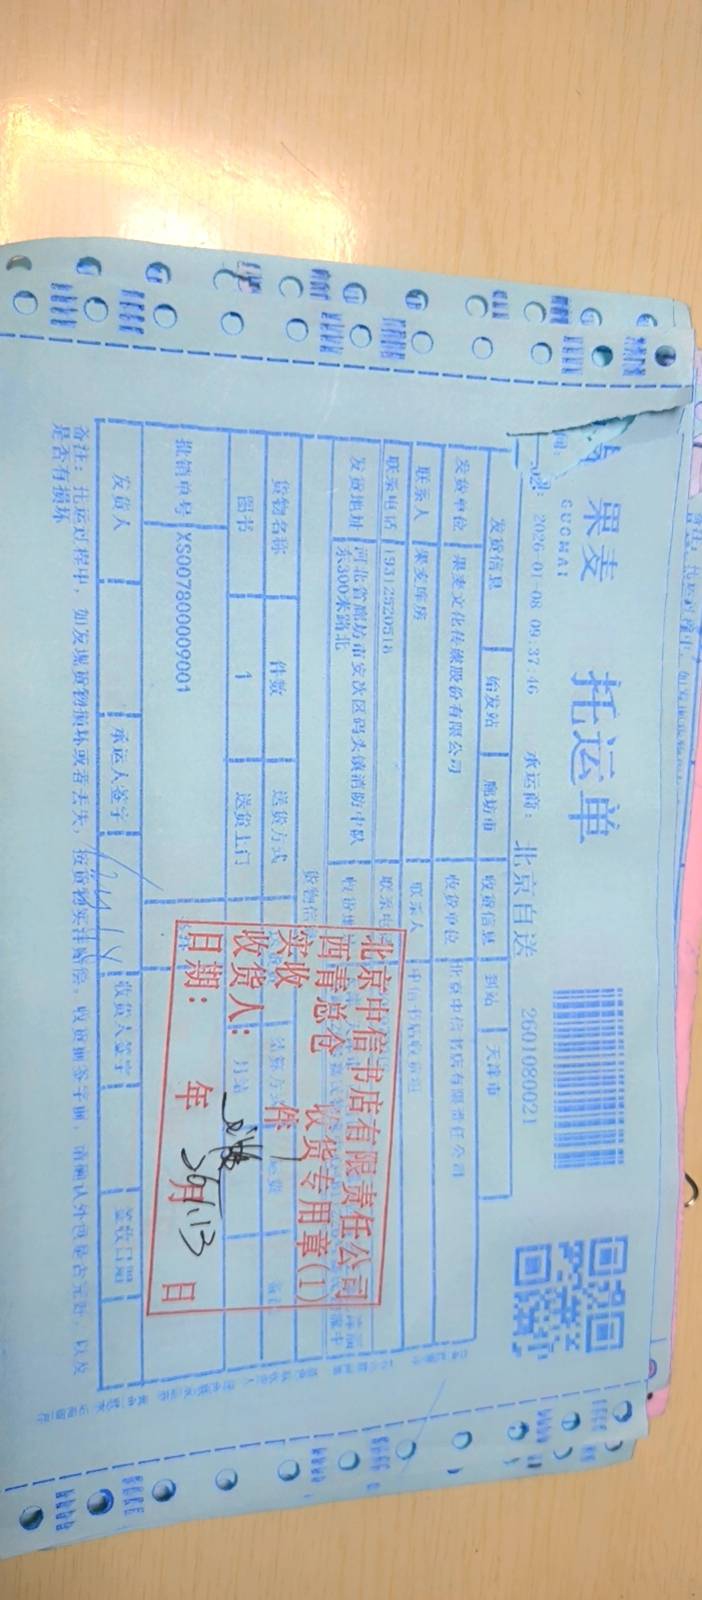 果麦 托运单
GUOMAI
2026-01-08 09:37:46 承运商: 北京自送 2601080021
发货信息 始发站 廊坊市 收货信息 到站 天津市
发货单位 果麦文化传媒股份有限公司 收货单位 北京中信书店有限责任公司
联系人 果麦库房 联系人 中信书店收货组
联系电话 19312520518 联系电
发货地址 河北省廊坊市安次区码头镇消防中队东300米路北 收货地
货物信
货物名称 件数 送货方式 结算方式 运费
图书 1 送货上门 月结
批销单号 XS007800009001
发货人 承运人签字 收货人签字 签收日期
备注: 托运过程中, 如发现货物损坏或者丢失, 按货物实洋赔偿。收货前签字前, 请确认外包是否完好, 以及
是否有损坏
北京中信书店有限责任公司
西青总仓 收货专用章(1)
实收 件
收货人:
日期: 年 月 日